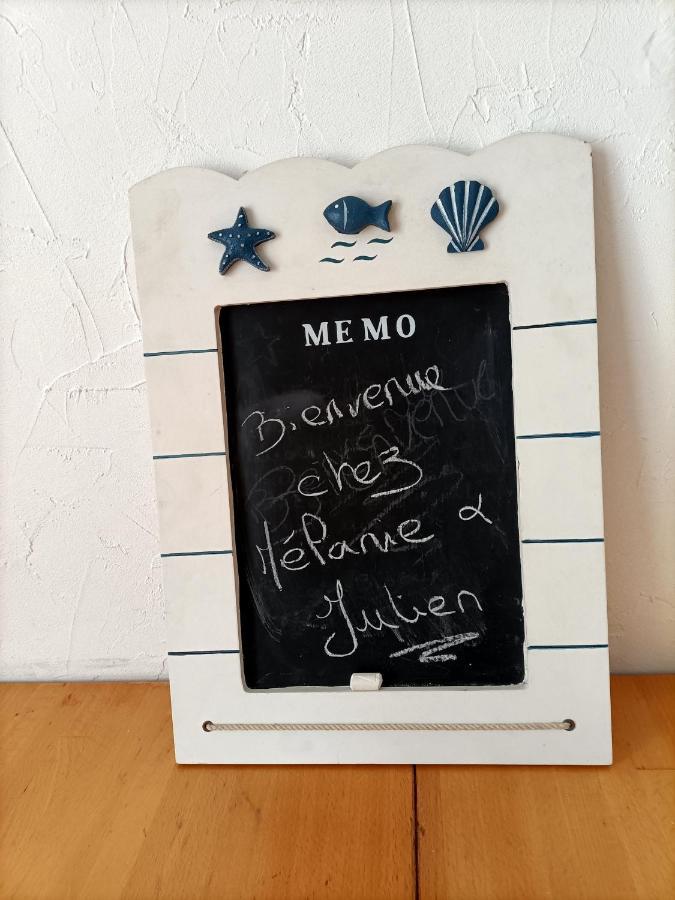 MEMO
Bienvenue
chez
Mélanie &
Julien